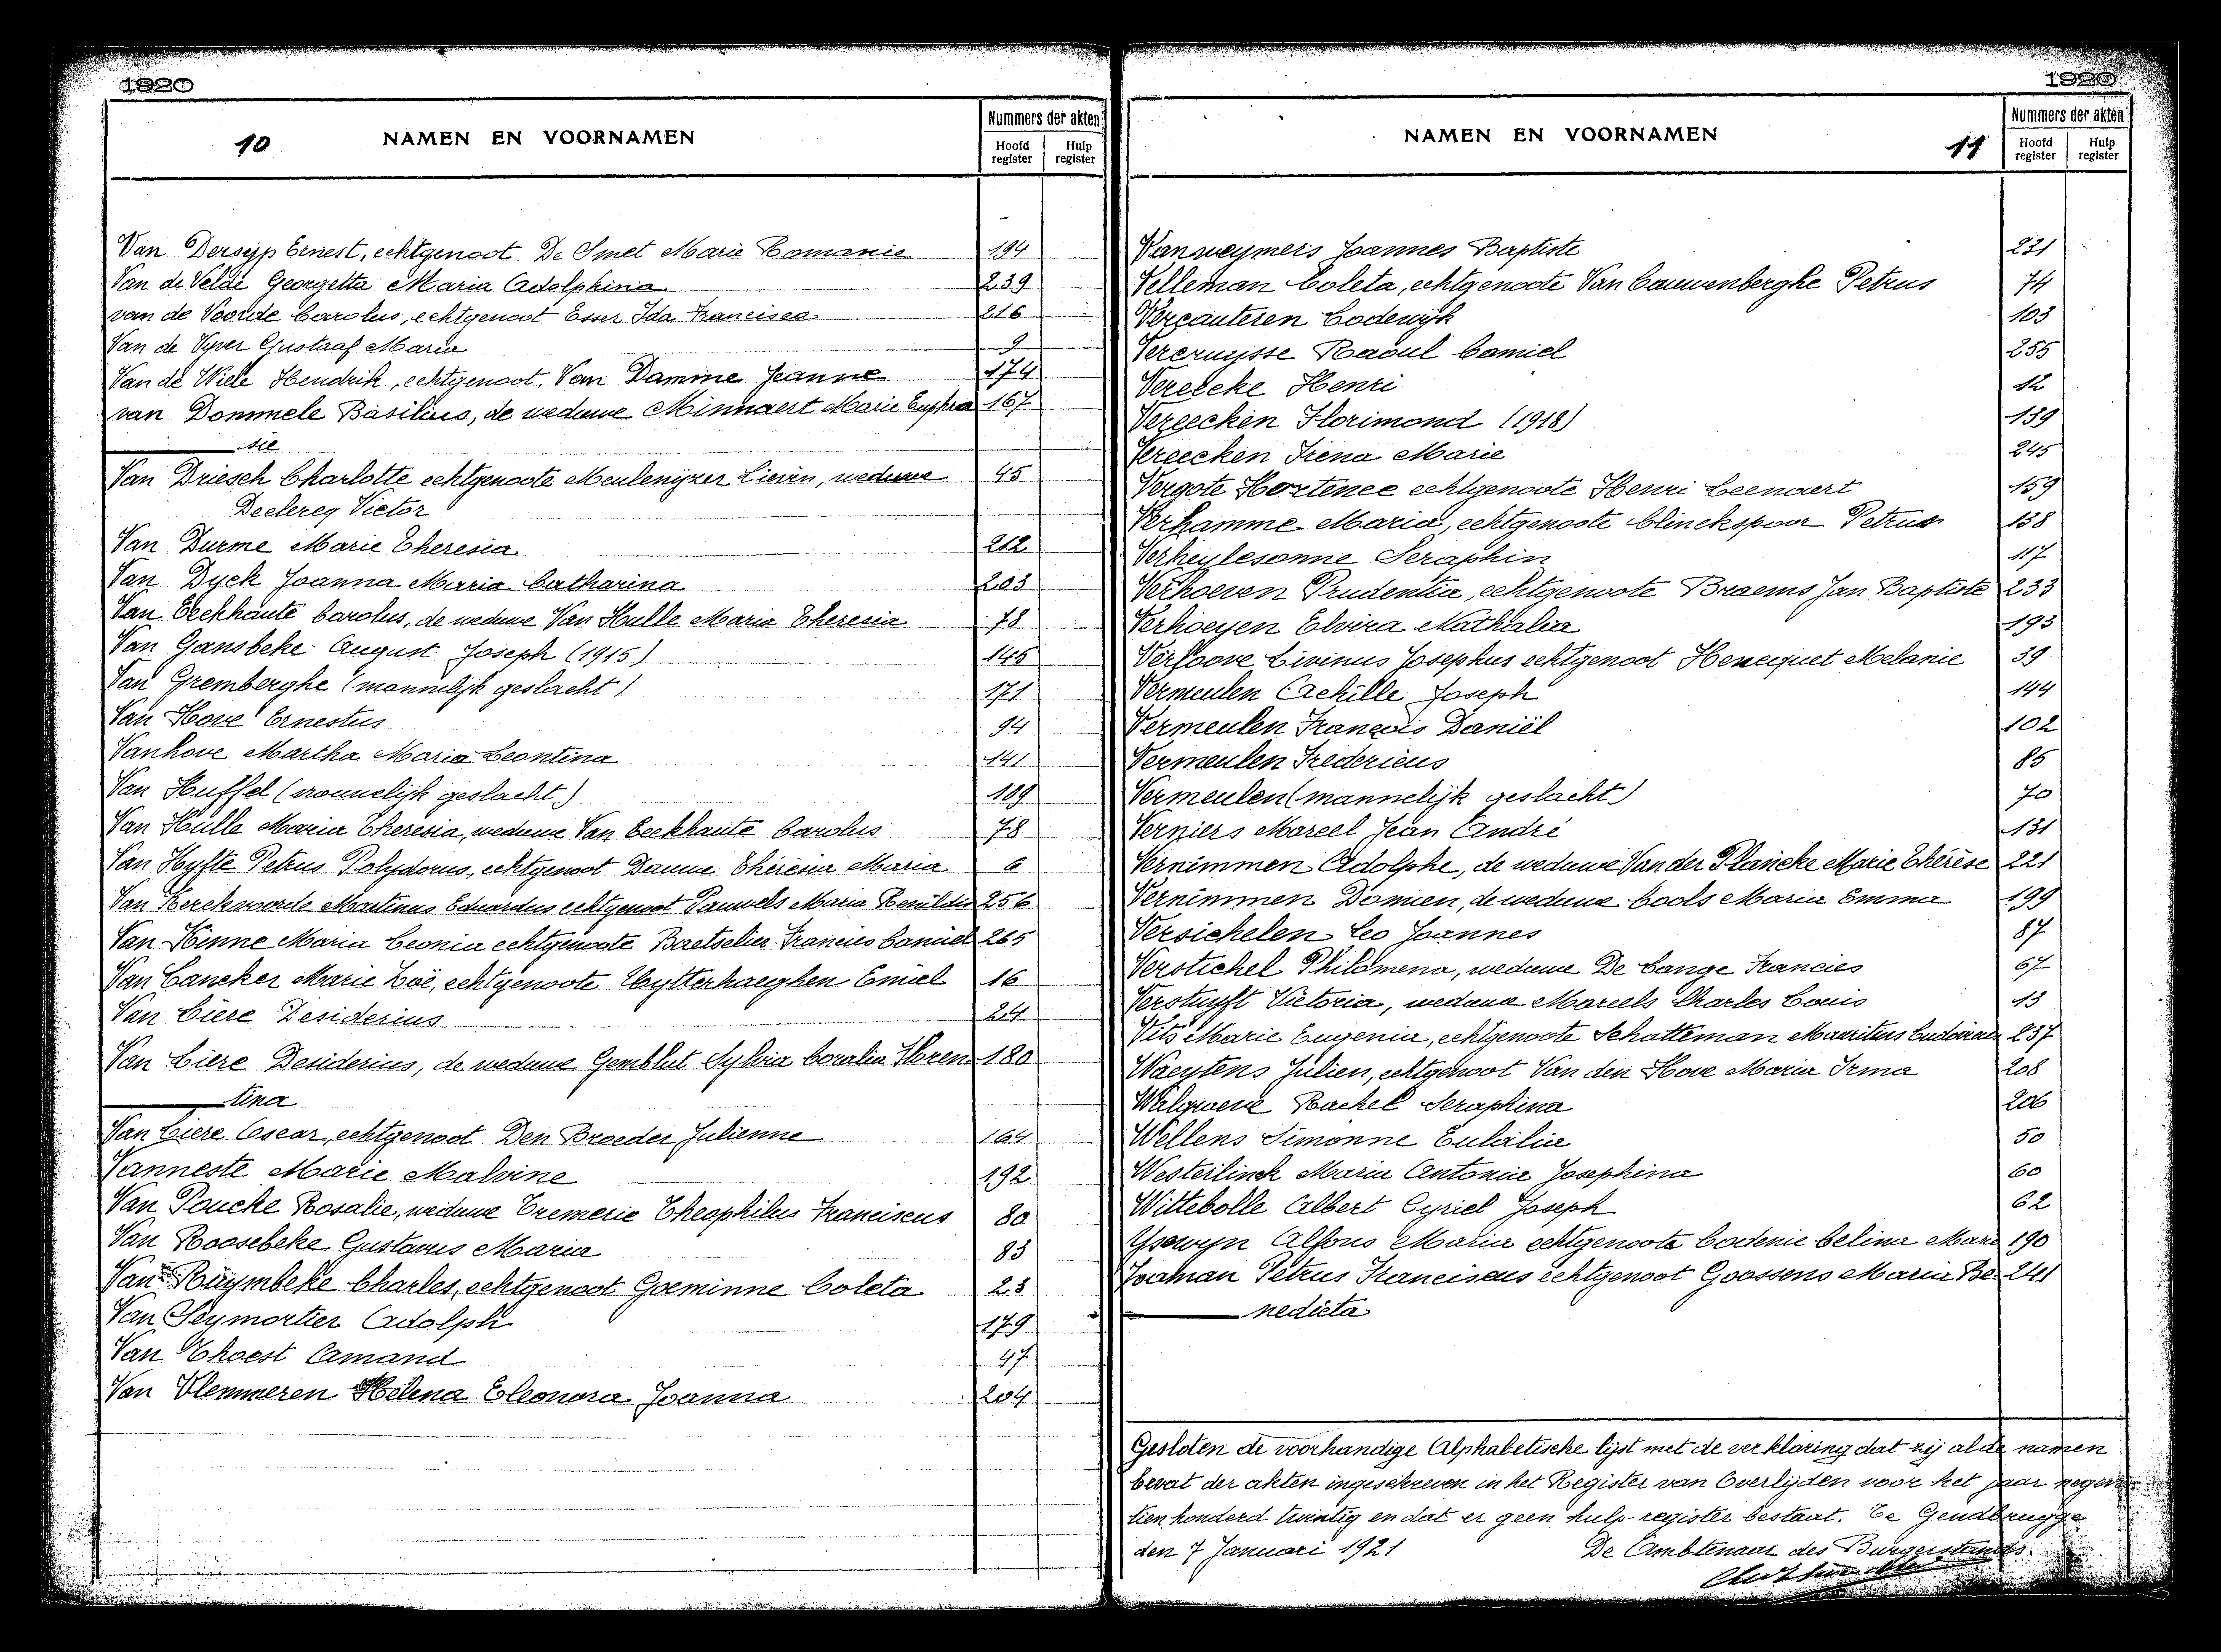 1920
10
NAMEN EN VOORNAMEN
Nummers der akten
Hoofd register
Hulp register
Van Dersyp Ernest, echtgenoot De Smet Marie Romanie 194
Van de Velde Georgetta Maria Adolphina 239
van de Voorde Carolus, echtgenoot Ida Francisca 216
Van de Vyver Gustaaf Maria 9
Van de Wiele Hendrik, echtgenoot, Van Damme Jeanne 174
van Dommele Basilius, de weduwe Minnaert Marie Euphra 167
sie
Van Driesch Charlotte echtgenoote Meulenijzer Lievin, weduwe 45
Declercq Victor
Van Durme Marie Theresia 212
Van Dyck Joanna Maria Catharina 203
Van Eeckhaute Carolus, de weduwe Van Hulle Maria Theresia 78
Van Gansbeke August Joseph (1915) 145
Van Gremberghe (mannelijk geslacht) 171
Van Hove Ernestus 94
Vanhove Martha Maria Leontina 141
Van Huffel (vrouwelijk geslacht) 109
Van Hulle Maria Theresia, weduwe Van Eeckhaute Carolus 78
Van Hyfte Petrus Polydorus, echtgenoot Dauwe Thérèsia Maria 6
Van Kerckvoorde Martinus Eduardus echtgenoot Pauwels Maria Renildis 256
Van Kinne Maria Leonia echtgenoote Baetselier Francies Camiel 265
Van Lancker Marie Zoë, echtgenoote Uytterhaeghen Emiel 16
Van Lière Desiderius 24
Van Lière Desiderius, de weduwe Gemblut Sylvia Coralia Floren 180
tina
Van Liere Oscar, echtgenoot Den Broeder Julienne 164
Vanneste Marie Malvine 192
Van Poucke Rosalie, weduwe Tremerie Theophilus Franciscus 80
Van Roosebeke Gustavus Maria 83
Van Ruymbeke Charles, echtgenoot Goeminne Coleta 23
Van Seymortier Adolph 179
Van Thoest Amand 47
Van Vlemmeren Helena Eleonora Joanna 204
1920
NAMEN EN VOORNAMEN
11
Nummers der akten
Hoofd register
Hulp register
Vanweymers Joannes Baptiste 231
Velleman Coleta, echtgenoote Van Cauwenberghe Petrus 74
Vercauteren Lodewijk 103
Vercruysse Raoul Camiel 255
Verecke Henri 12
Vereecken Florimond (1918) 139
Vereecken Irena Marie 245
Vergote Hortence echtgenoote Henri Leenaert 159
Verhamme Maria, echtgenoote Clinckspoor Petrus 138
Verheylesonne Seraphin 117
Verhoeven Prudentia, echtgenoote Braems Jan Baptiste 233
Verhoeyen Elvira Nathalia 193
Verloove Livinus Josephus echtgenoot Hennequet Melanie 39
Vermeulen Achille Joseph 144
Vermeulen François Daniël 102
Vermeulen Fredericus 85
Vermeulen (mannelijk geslacht) 70
Verniers Marcel Jean André 131
Vernimmen Adolphe, de weduwe Van der Plancke Marie Thérèse 221
Vernimmen Domien, de weduwe Cools Maria Emma 199
Versichelen Leo Joannes 87
Verstichel Philomena, weduwe De Lange Francies 67
Verstuyft Victoria, weduwe Marcels Charles Louis 13
Vits Marie Eugenia, echtgenoote Schatteman Mauritius 237
Waeytens Julien, echtgenoot Van den Hove Maria Irma 208
Walgraeve Rachel Seraphina 206
Wellens Simonne Eulalia 50
Westerlinck Maria Antonia Josephina 60
Wittebolle Albert Cyriel Joseph 62
Ysewyn Alfons Maria echtgenoote Lodenie Celina Mari 190
Zoaman Petrus Franciscus echtgenoot Goossens Maria Be 241
nedicta
Gesloten de voorhandige Alphabetische lijst met de verklaring dat zij al de namen
bevat der akten ingeschreven in het Register van Overlijden voor het jaar negen
tien honderd twintig en dat er geen hulp-register bestaat. Te Gendbrugge
den 7 Januari 1921
De Ambtenaar des Burgerstands.